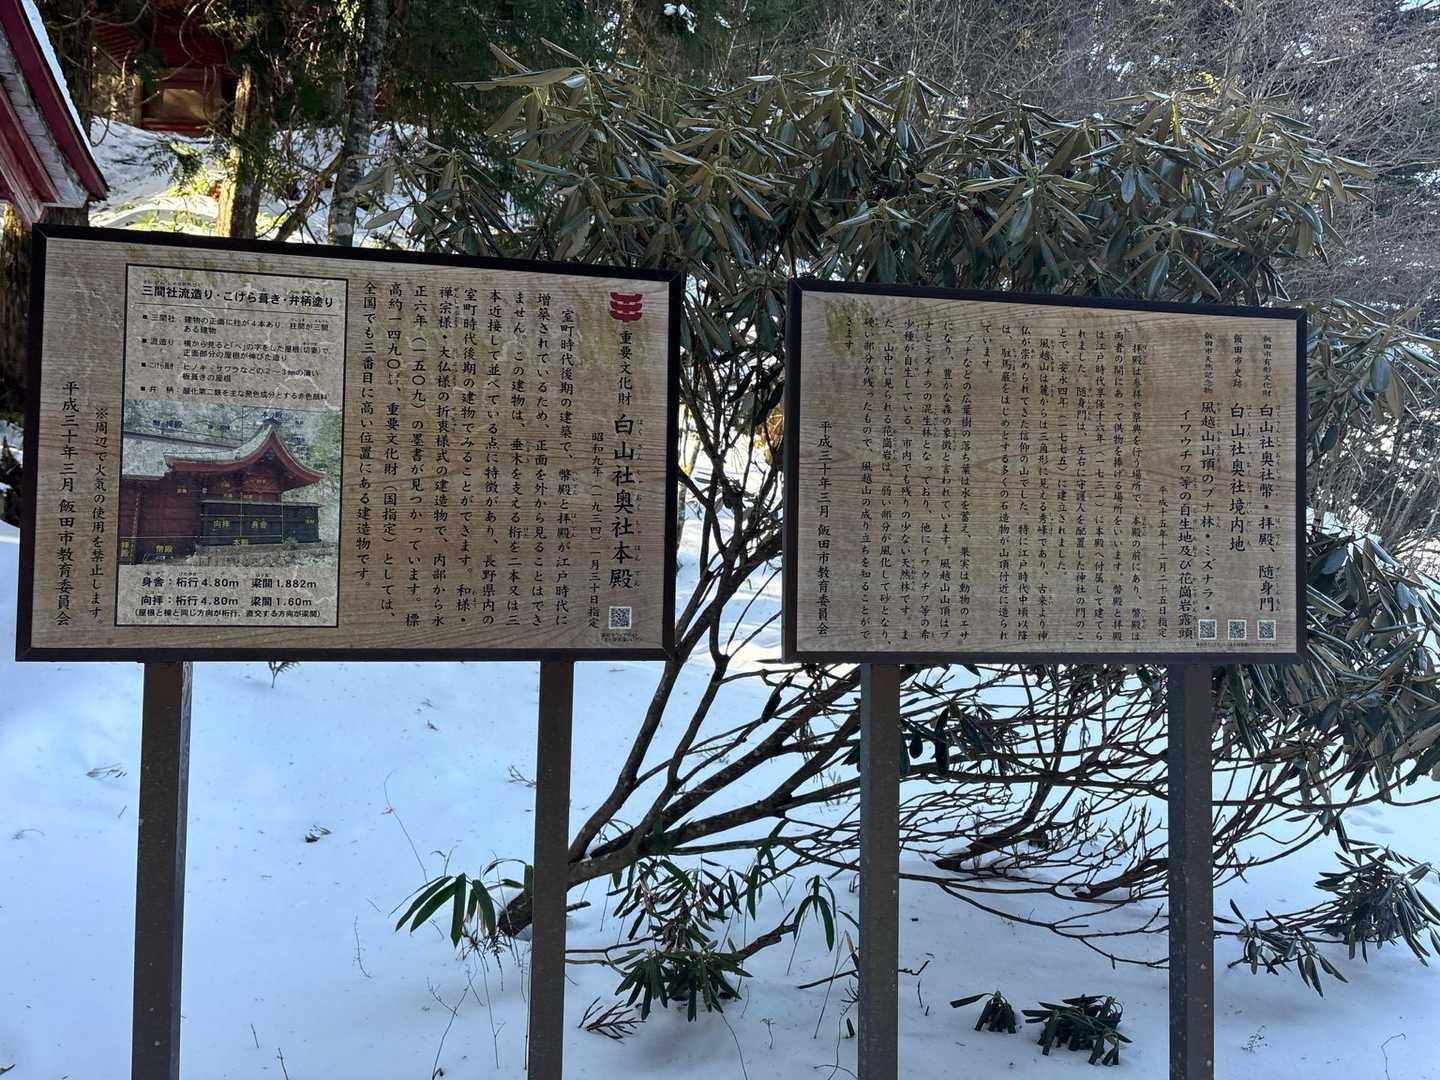 重要文化財 白山社奥社本殿
昭和九年(一九三四)一月三十日指定
室町時代後期の建築で、幣殿と拝殿が江戸時代に
増築されているため、正面を外から見ることはでき
ません。この建物は、垂木を支える桁を二本又は三
本近接して並べている点に特徴があり、長野県内の
室町時代後期の建物でみることができます。和様・
禅宗様・大仏様の折衷様式の建造物で、内部から永
正六年(一五〇九)の墨書が見つかっています。標
高約一四九〇m、重要文化財(国指定)としては、
全国でも三番目に高い位置にある建造物です。
三間社流造り・こけら葺き・弁柄塗り
■三間社 建物の正面に柱が4本あり、柱間が三間
ある建物
■流造り 横から見ると「へ」の字をした屋根(切妻)で、
正面部分の屋根が伸びた造り
■こけら葺き ヒノキ・サワラなどの2~3㎜の薄い
板葺きの屋根
■弁柄 酸化第二鉄を主な発色成分とする赤色顔料
本殿
向拝 身舎
幣殿
拝殿
身舎:桁行4.80m 梁間1.882m
向拝:桁行4.80m 梁間1.60m
(屋根と棟と同じ方向が桁行、直交する方向が梁間)
※周辺で火気の使用を禁止します。
平成三十年三月 飯田市教育委員会
飯田市有形文化財 白山社奥社幣・拝殿、随身門
飯田市史跡 白山社奥社境内地
飯田市天然記念物 風越山山頂のブナ林・ミズナラ・
イワウチワ等の自生地及び花崗岩露頭
平成十五年十二月二十五日指定
拝殿は参拝や祭典を行う場所で、本殿の前にあり、幣殿は
両者の間にあって供物を捧げる場所をいいます。幣殿と拝殿
は江戸時代享保十六年(一七三一)に本殿へ付属して建てら
れました。随身門は、左右に守護人を配置した神社の門のこ
とで、安永四年(一七七五)に建立されました。
風越山は麓からは三角形に見える秀峰であり、古来より神
仏が崇められてきた信仰の山でした。特に江戸時代中頃以降
は、駈馬巌をはじめとする多くの石造物が山頂付近に造られ
ています。
ブナなどの広葉樹の落ち葉は水を蓄え、果実は動物のエサ
になり、豊かな森の象徴と言われています。風越山山頂はブ
ナとミズナラの混生林となっており、他にイワウチワ等の希
少種が自生している、市内でも残りの少ない天然林です。ま
た、山中に見られる花崗岩は、弱い部分が風化して砂となり、
硬い部分が残ったもので、風越山の成り立ちを知ることがで
きます。
平成三十年三月 飯田市教育委員会